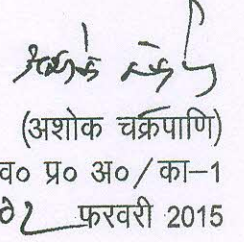 (अशोक चक्रपाणि)
व० प्र० अ०/का–1
फरवरी 2015